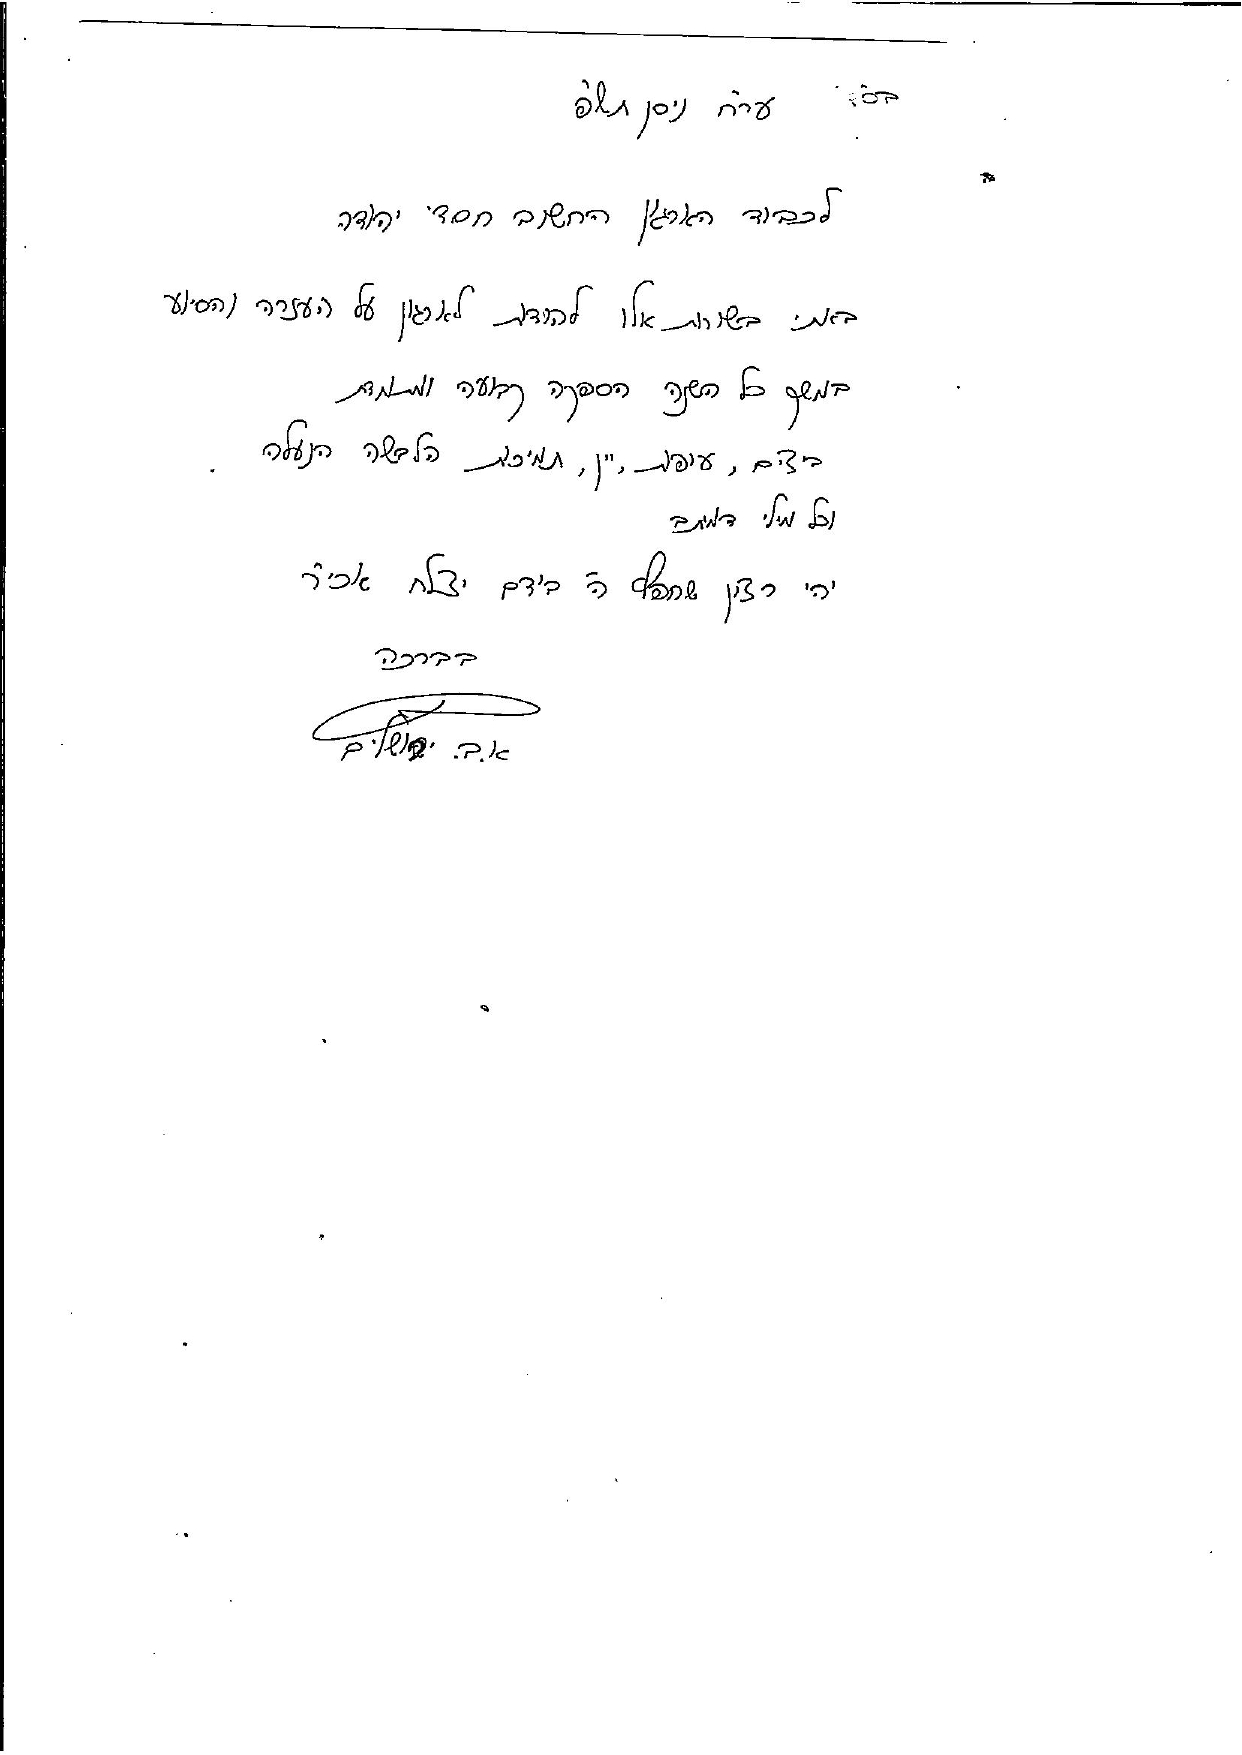 בס"ד ער"ח ניסן תש"פ
לכבוד הארגון החשוב חסדי יהודה
באתי בשורות אלו להודות לארגון על העזרה והסיוע
במשך כל השנה הספקה קבועה ומתמדת
ביצים, עופות, יין, תמיכות הלבשה הנעלה
וכל מילי דמיטב
יהי רצון שחפץ ה' בידם יצלח אכי"ר
בברכה
א.ב. ירושלים